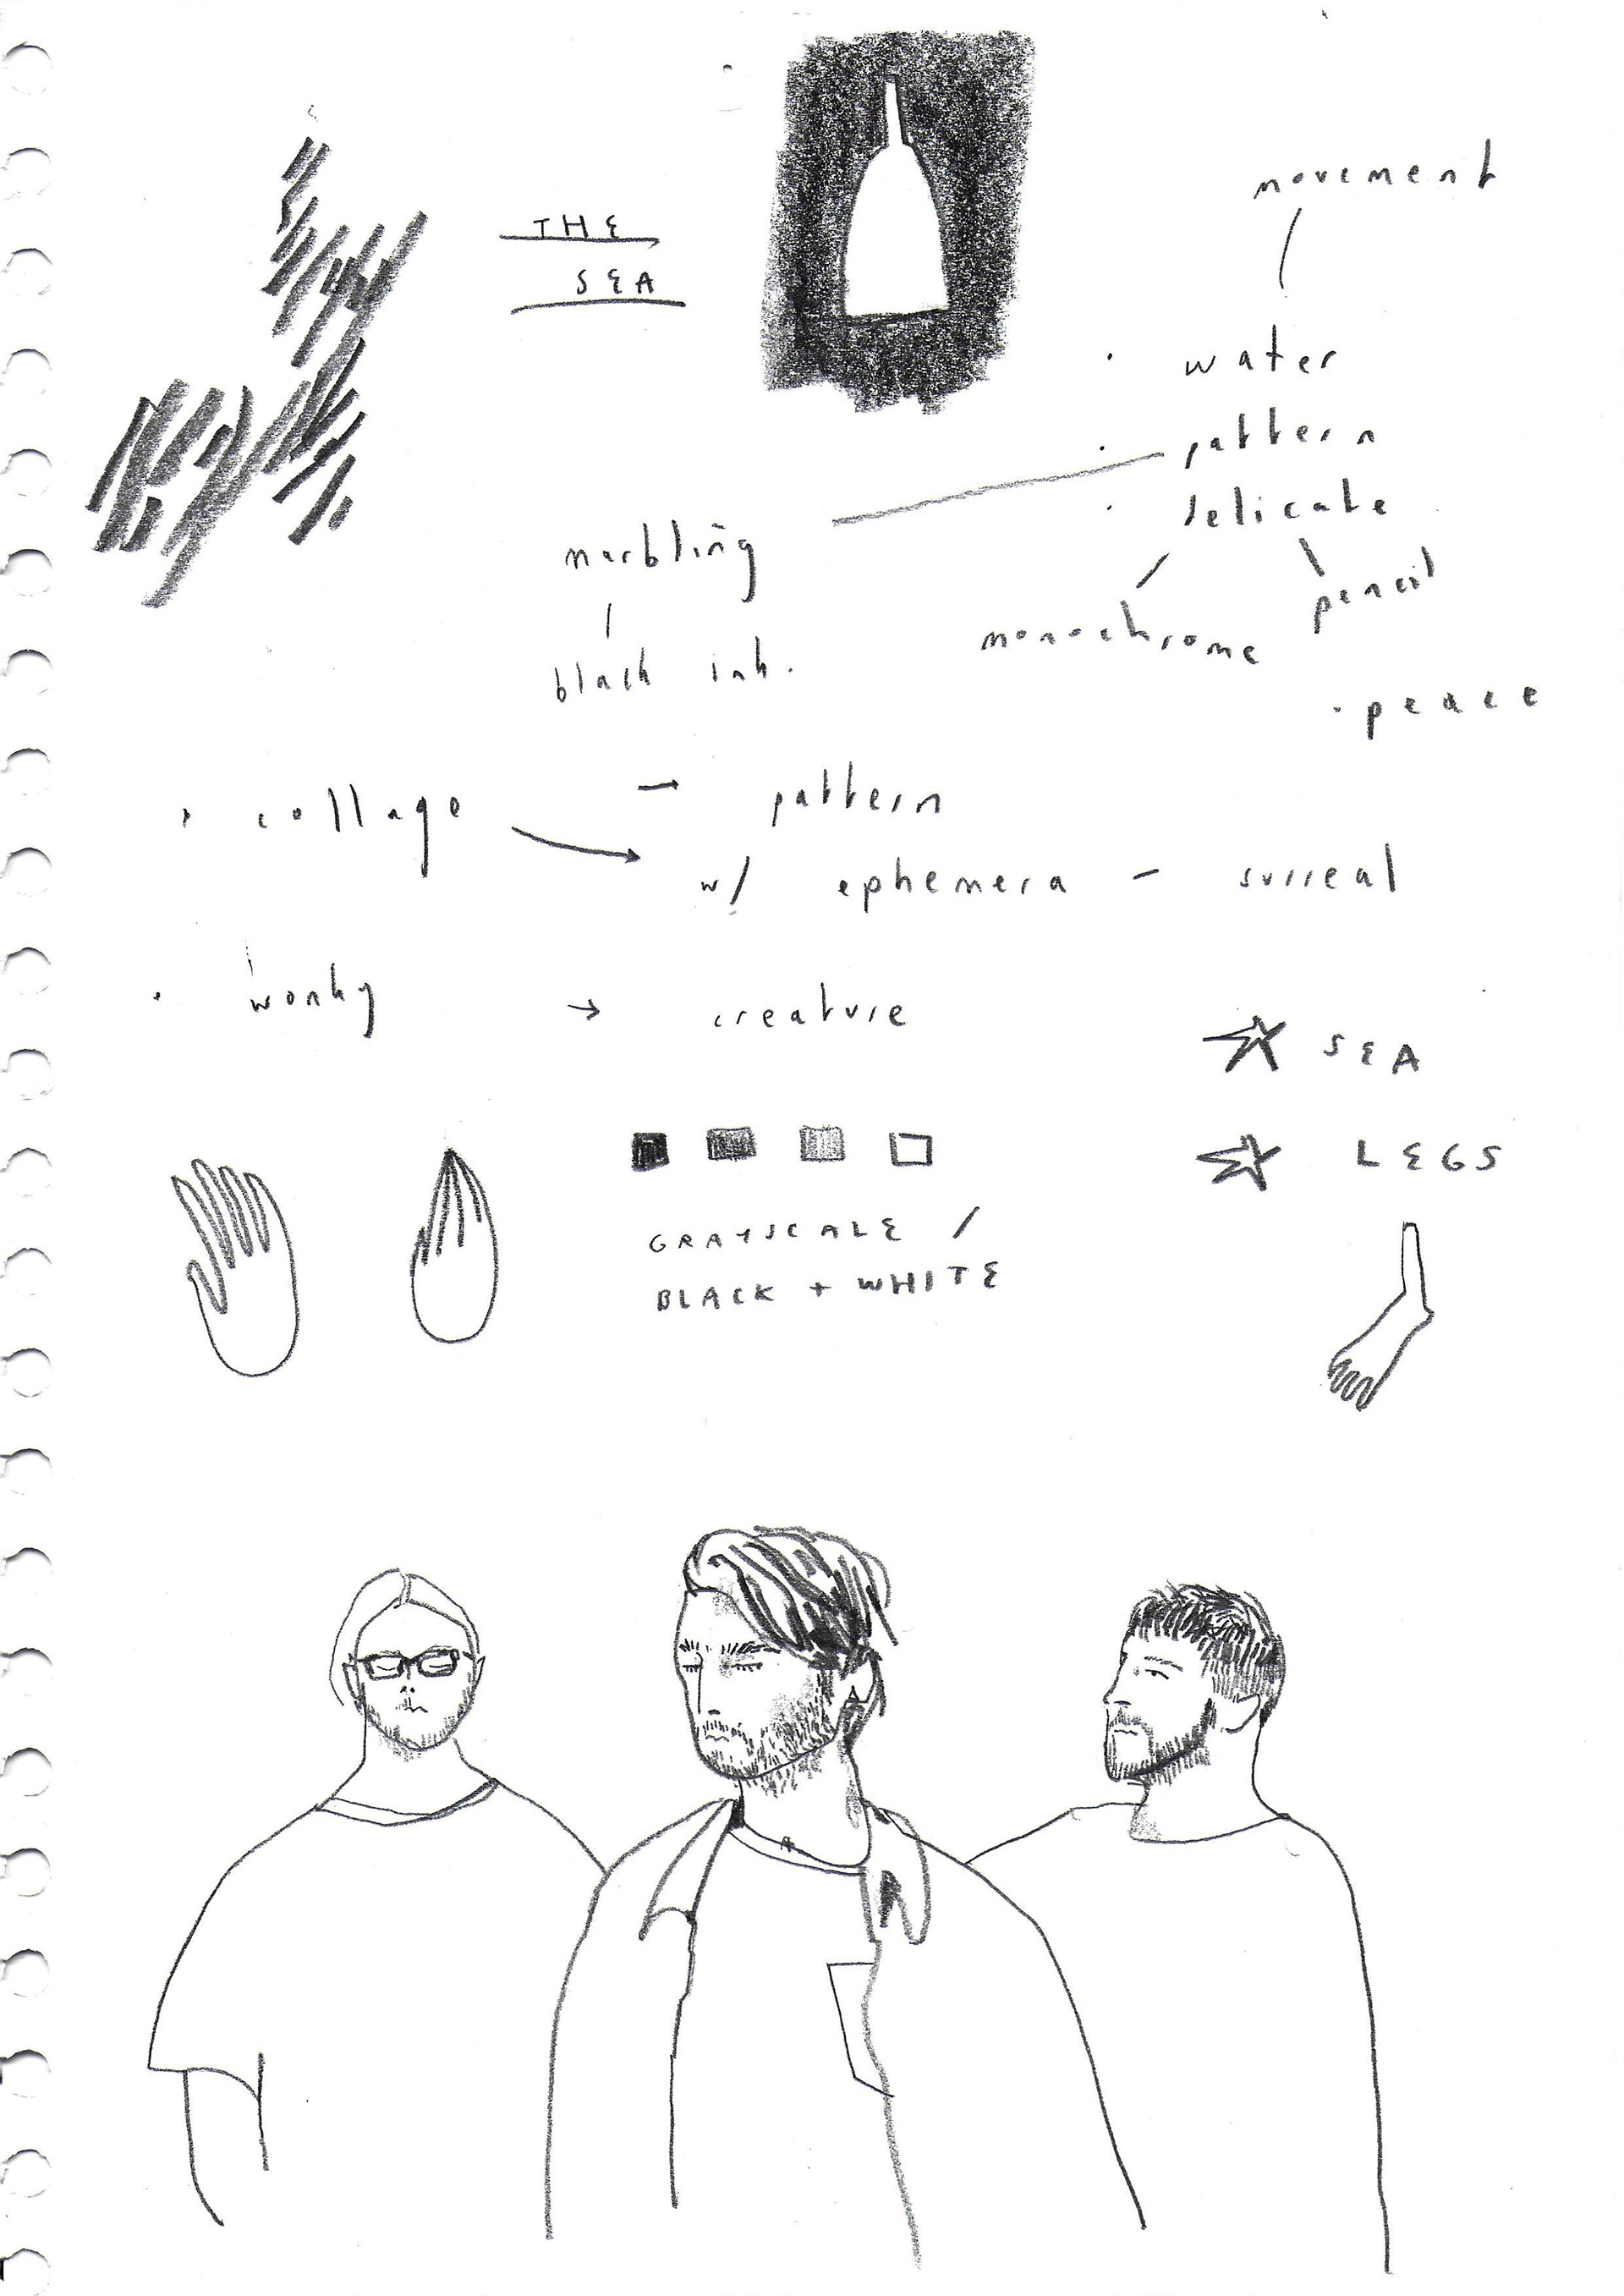 THE
SEA
movement
water
pattern
delicate
marbling
pencil
monochrome
black ink.
peace
collage → pattern
w/ ephemera - surreal
wonky → creature
SEA
LEGS
GRAYSCALE /
BLACK + WHITE